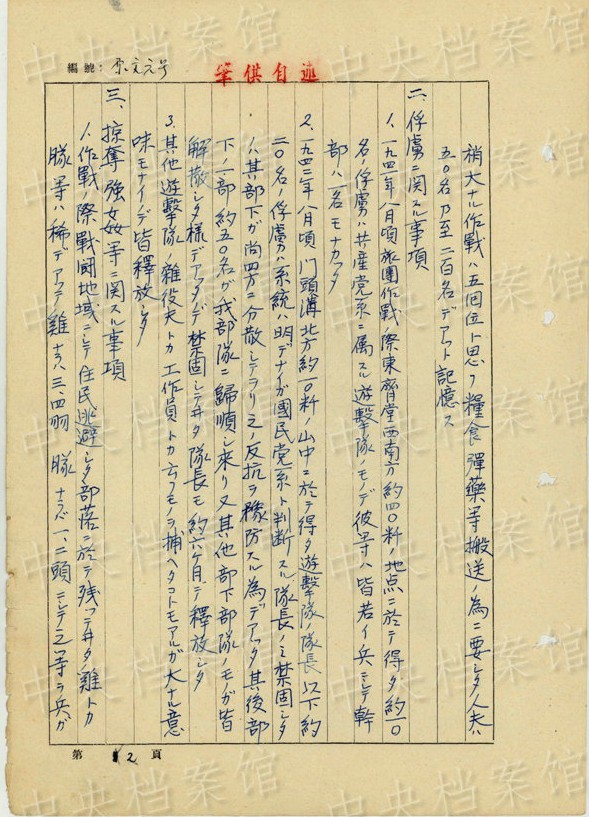 編號：
筆供自述
稍大ナル作戰ハ五回位ト思フ糧食彈藥等搬送ノ為ニ要シタ人夫ハ
五〇名乃至二百名デアツタト記憶ス
二、俘虜ニ関スル事項
1、一九四二年八月頃旅團作戰ノ際東齊堂西南方約四〇粁ノ地点ニ於テ得タ約一〇
名ノ俘虜ハ共産党系ニ属スル遊擊隊ノモノデ彼等ハ皆若イ兵ニシテ幹
部ハ一名モナカツタ
2、一九四三年八月頃門頭溝北方約一〇粁ノ山中ニ於テ得タ遊擊隊ノ隊長以下約
二〇名ノ俘虜ハ系統ハ明デナイガ國民党系ト判断スル隊長ノミ禁固シタ
ハ其部下ガ尚四方ニ分散シテヲリ之ノ反抗ヲ豫防スル為デアツタ其後部
下ノ一部約五〇名ガ我部隊ニ歸順シ来リ又其他部下部隊ノモノガ皆
解散シタ様デアツタノデ禁固シテヰタ隊長モ約六ケ月デ釋放シタ
3、其他遊擊隊ノ雜役夫トカ工作員トカ云フモノヲ捕ヘタコトモアルガ大ナル意
味モナイノデ皆釋放シタ
三、掠奪強姦等ニ関スル事項
1、作戰ノ際戰闘地域ニシテ住民逃避シタ部落ニ於テ残ツテヰタ雞トカ
豚等ハ稀デアツテ雞ナラバ三、四羽 豚ナラバ一、二頭ニシテ之等ヲ兵ガ
第 2 頁
中央档案馆